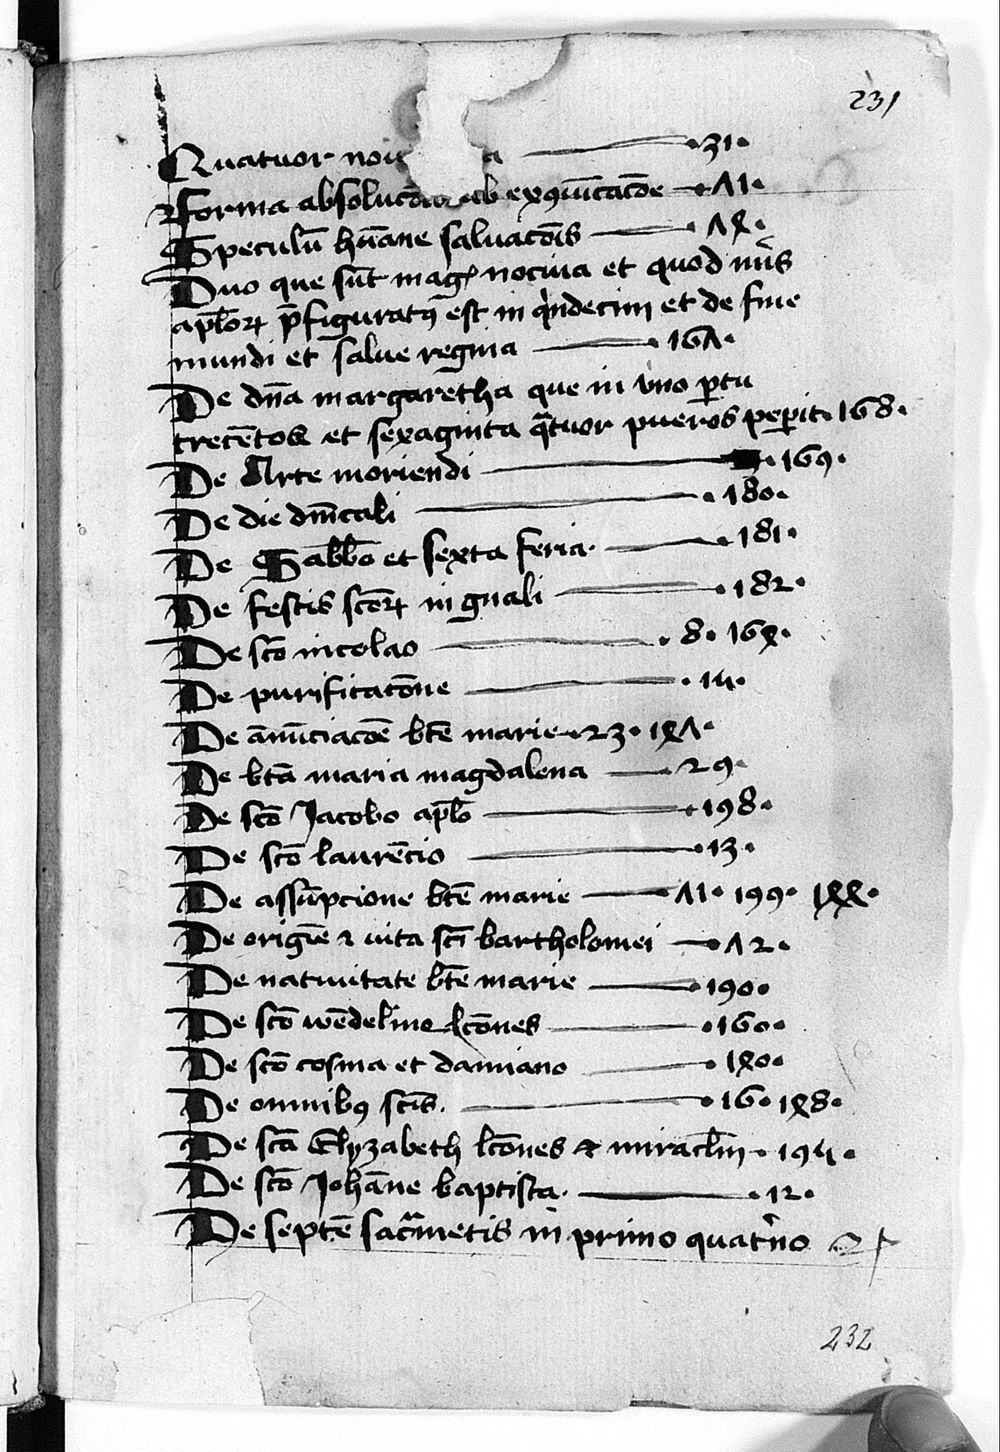 231
Quatuor nou a 31.
Forma absolucōis ab exꝯuicacōe 71.
Speculū hūane saluacōis 74.
Duo que sūt mag nociua et quod nūs
aplōꝝ p̄figuratꝰ est in quīndecim et de fine
mundi et salue regina 167.
De dn̄a margaretha que in vno partu
trecētos et sexaginta qͣtuor pueros peperit. 168.
De Arte moriendi 169.
De die dn̄icali 180.
De Sabbō et sexta feria. 181.
De festis scōꝝ in gn̄ali 182.
De scō nicolao 8. 164.
De purificacōne 14.
De an̄ūciacōe btē marie. 23. 147.
De btā maria magdalena 29.
De scō Jacobo aplō 198.
De scō laurēcio 13.
De assūpcione btē marie 71. 199. 144.
De origīe ⁊ uita scī bartholomei 72.
De natiuitate btē marie 190.
De scō wēdelino lcōnes 160.
De scō cosma et damiano 140.
De omnibꝰ scīs. 16. 148.
De scā Elyzabeth lcōnes ⁊ miraclm̄. 194.
De scō Johāne baptista. 12.
De septē sacͣmētis in primo quatͥno
232